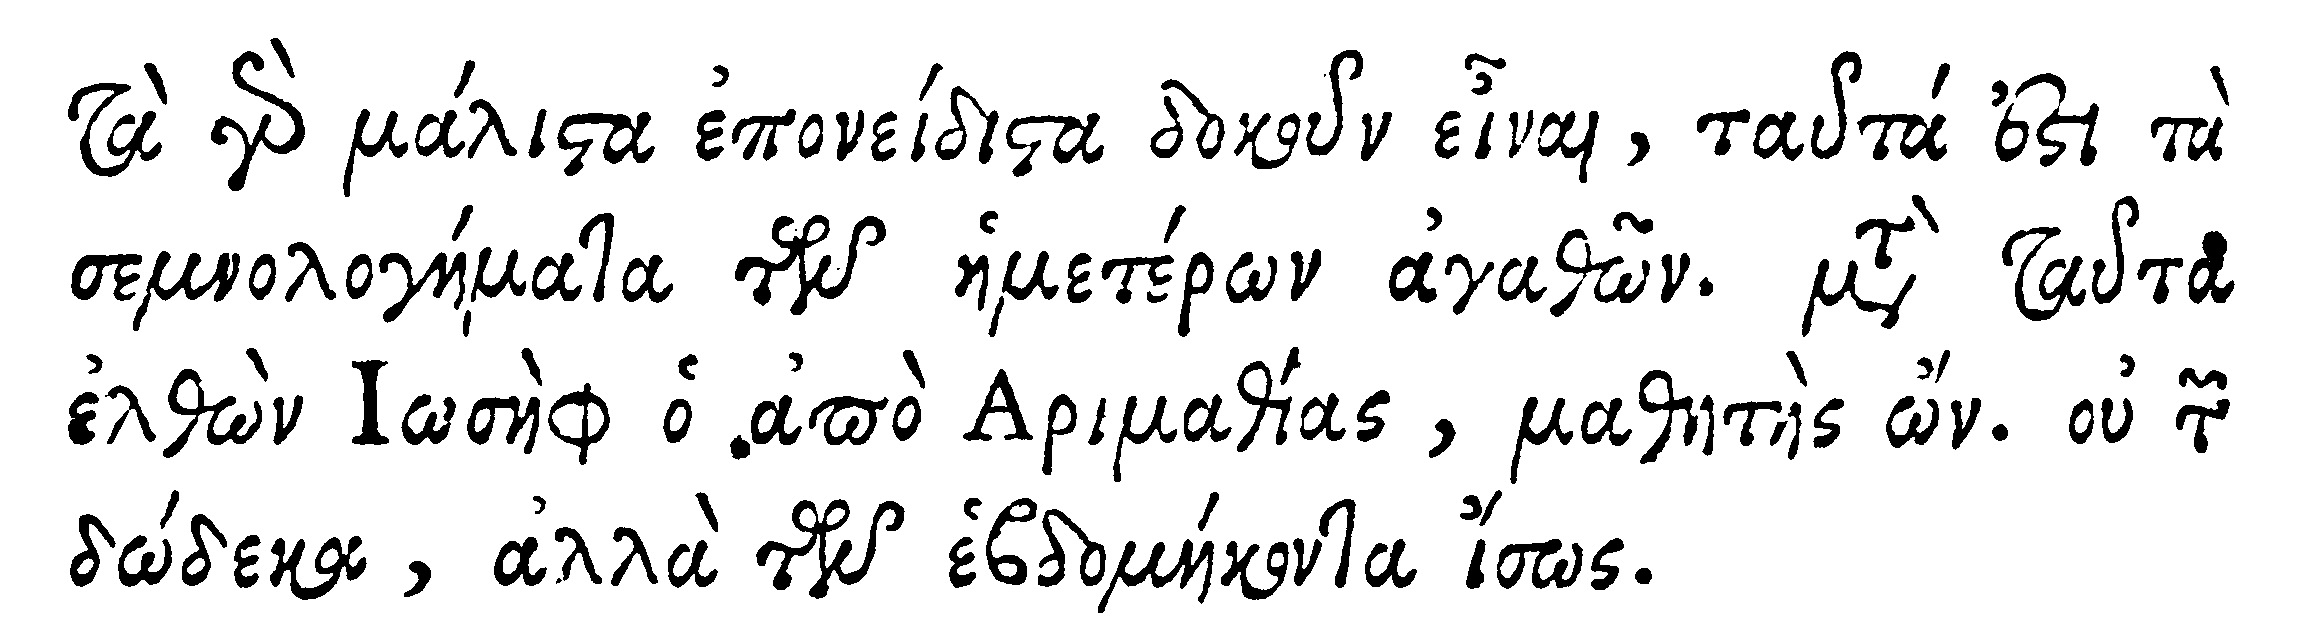 τὰ γὰρ μάλιϛα ἐπονείδιϛα δοκοῦν εἶναι, ταῦτά ἐϛι τὰ
σεμνολογήματα τῶν ἡμετέρων ἀγαθῶν. μετὰ ταῦτα
ἐλθὼν Ιωσὴφ ὁ ἀπὸ Αριμαθίας, μαθητὴς ὤν. οὐ τῶν
δώδεκα, ἀλλὰ τῶν ἑβδομήκοντα ἴσως.